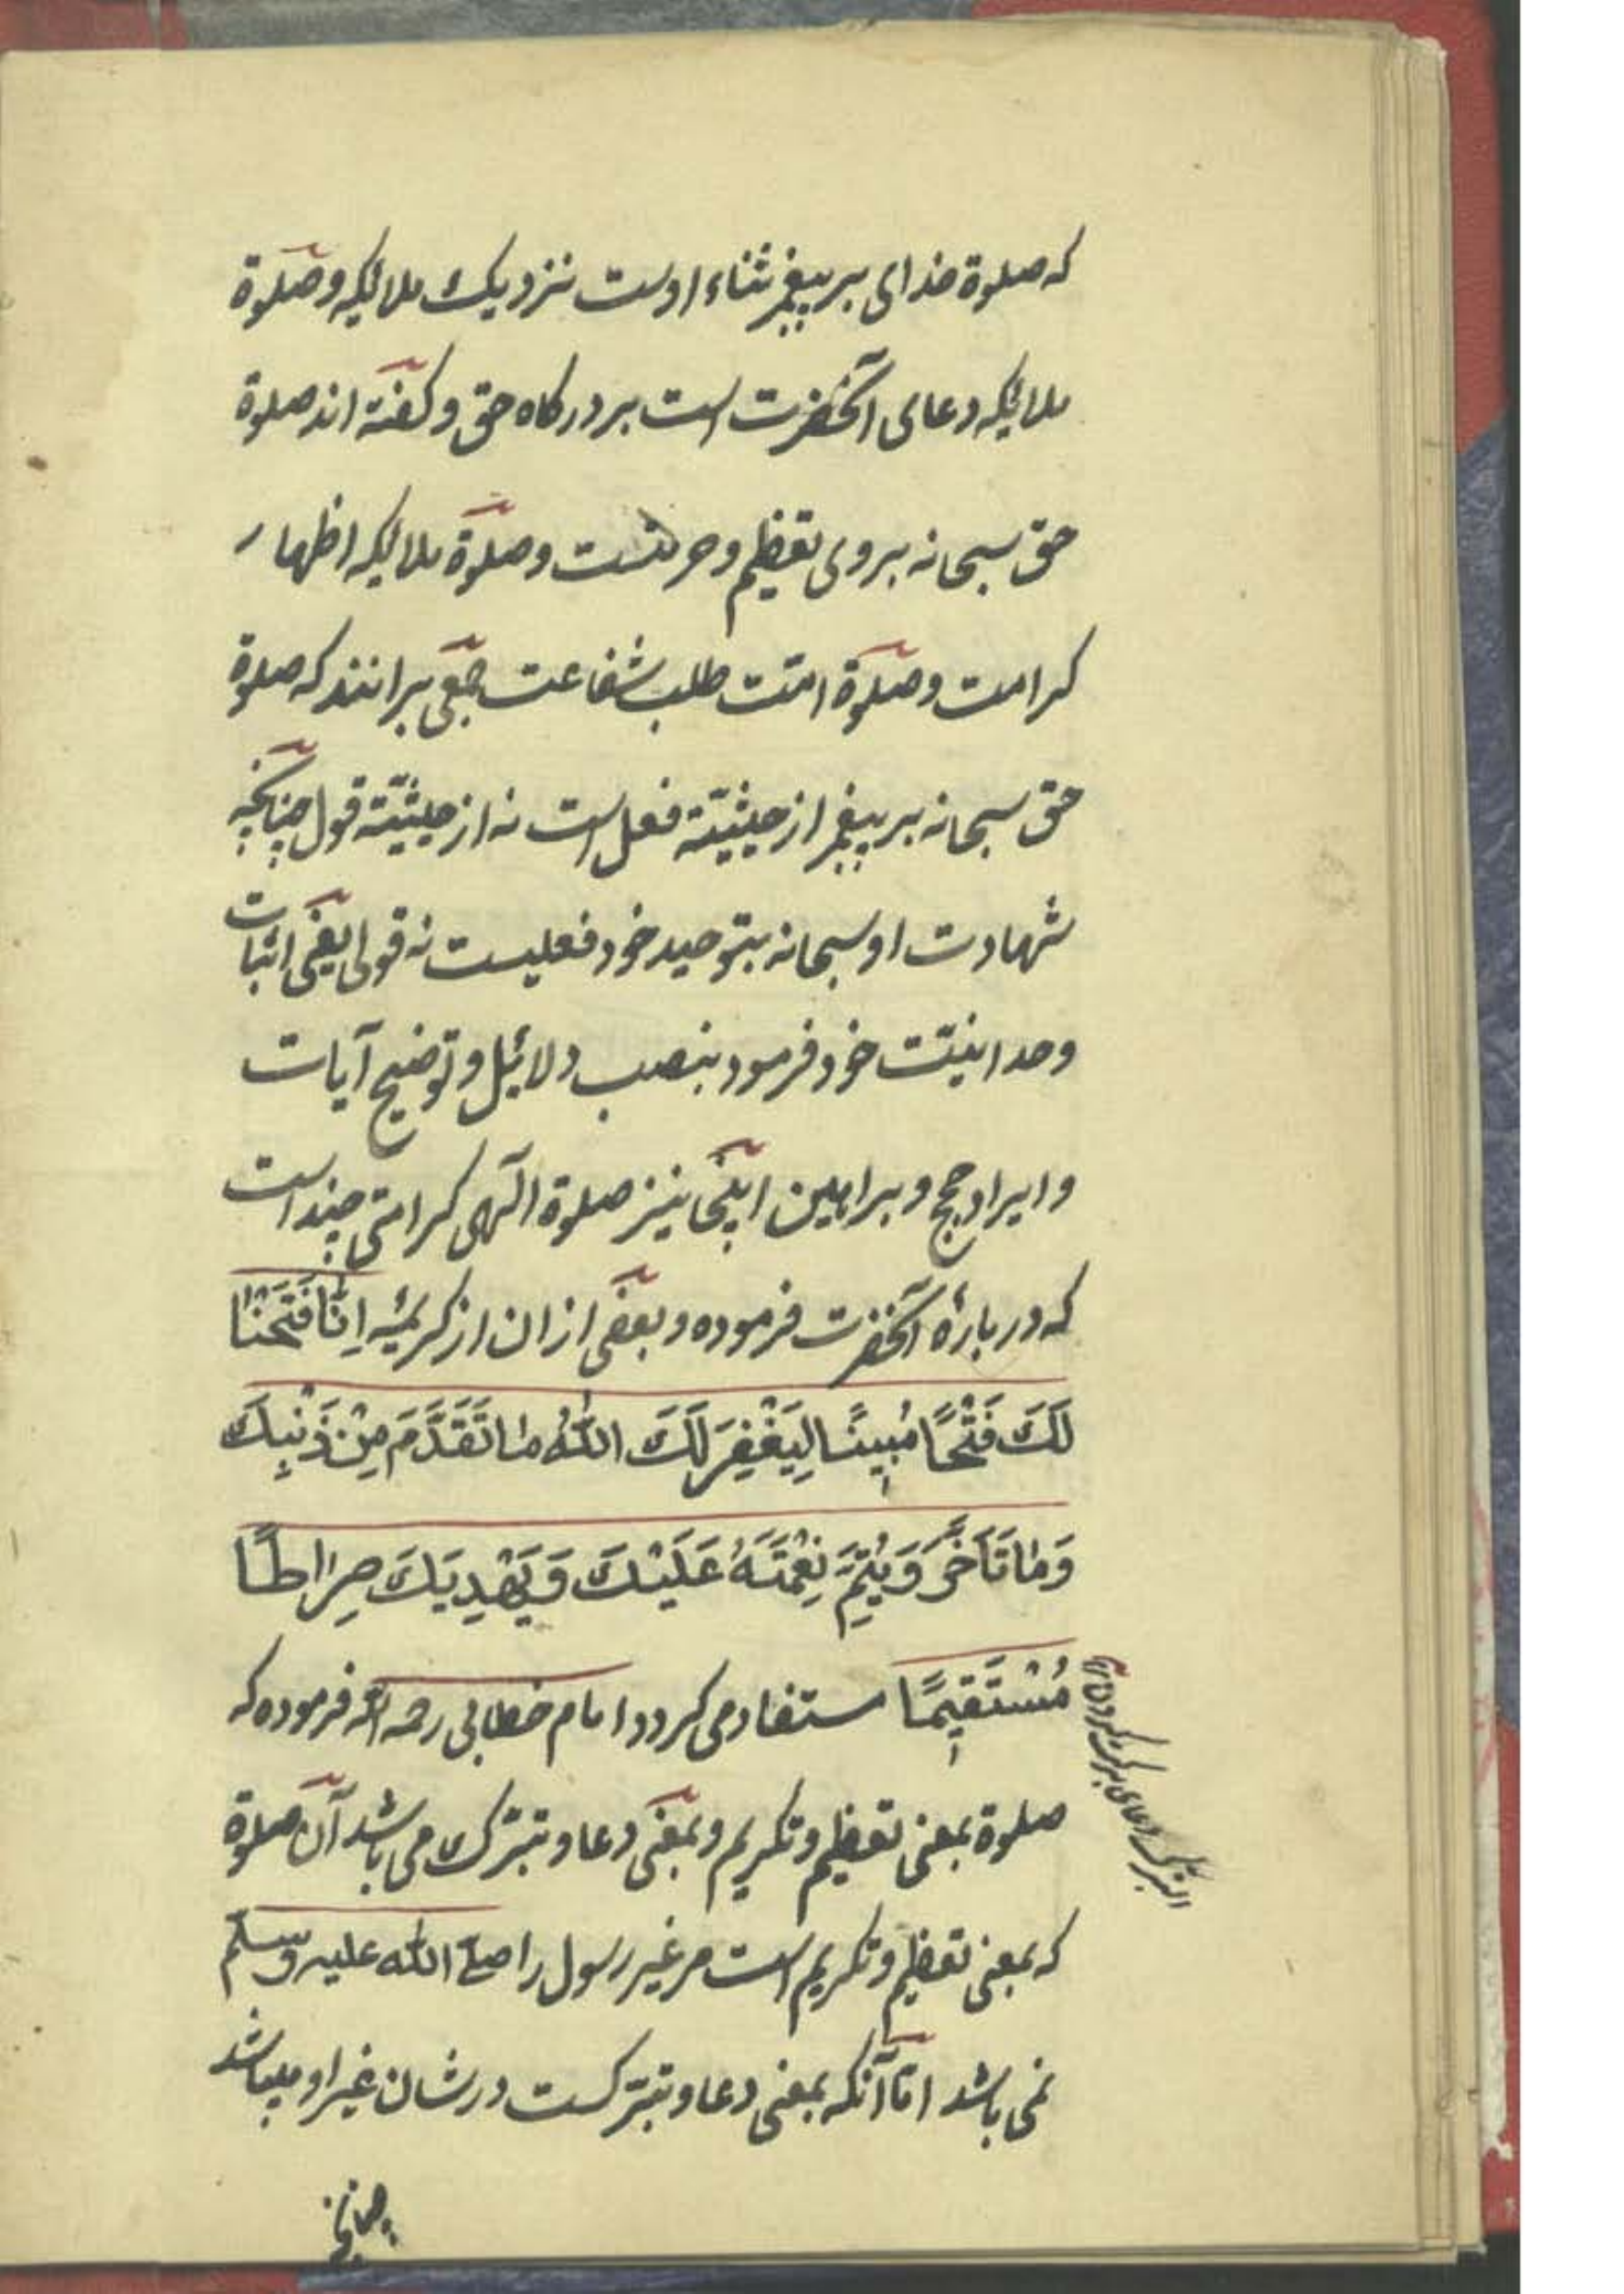 که صلوة خدای بر پیغمبر ثناء اوست نزدیک ملائکه و صلوة
ملائکه دعای آنحضرت است بر درکاه حق و کفته اند صلوة
حق سبحانه بروی تعظیم و حرمتست و صلوة ملائکه اظهار
کرامت و صلوة امّت طلب شفاعت جمعی برانند که صلوة
حق سبحانه بر پیغمبر از حیثیّته فعل است نه از حیثیّته قول چنانچه
شهادت او سبحانه بتوحید خود فعلیست نه قولی یعنی اثبات
وحدانیّت خود فرمود بنصب دلائیل و توضیح آیات
و ایراد حجج و براهین اینجا نیز صلوة الهی کرامتی چند است
که در بارهٔ آنحضرت فرموده و بعضی ازان از کریمهٔ اِنّا فَتَحْنا
لَكَ فَتْحًا مُبِینًا لِیَغْفِرَ لَكَ اللّٰهُ مٰا تَقَدَّمَ مِنْ ذَنْبِكَ
وَ مٰا تَاَخَّرَ وَ یُتِمَّ نِعْمَتَهُ عَلَیْكَ وَ یَهْدِیَكَ صِرٰاطًا
مُسْتَقِیمًا مستفاد می کردد امام خطابی رحمه الله فرموده که
صلوة بمعنی تعظیم و تکریم و بمعنی دعا و تبرّک می باشد آن صلوة
که بمعنی تعظیم و تکریم است مر غیر رسول را صلی الله علیه وسلم
نمی باشد امّا آنکه بمعنی دعا و تبرّکست در شان غیر او میباشد
چنانچه